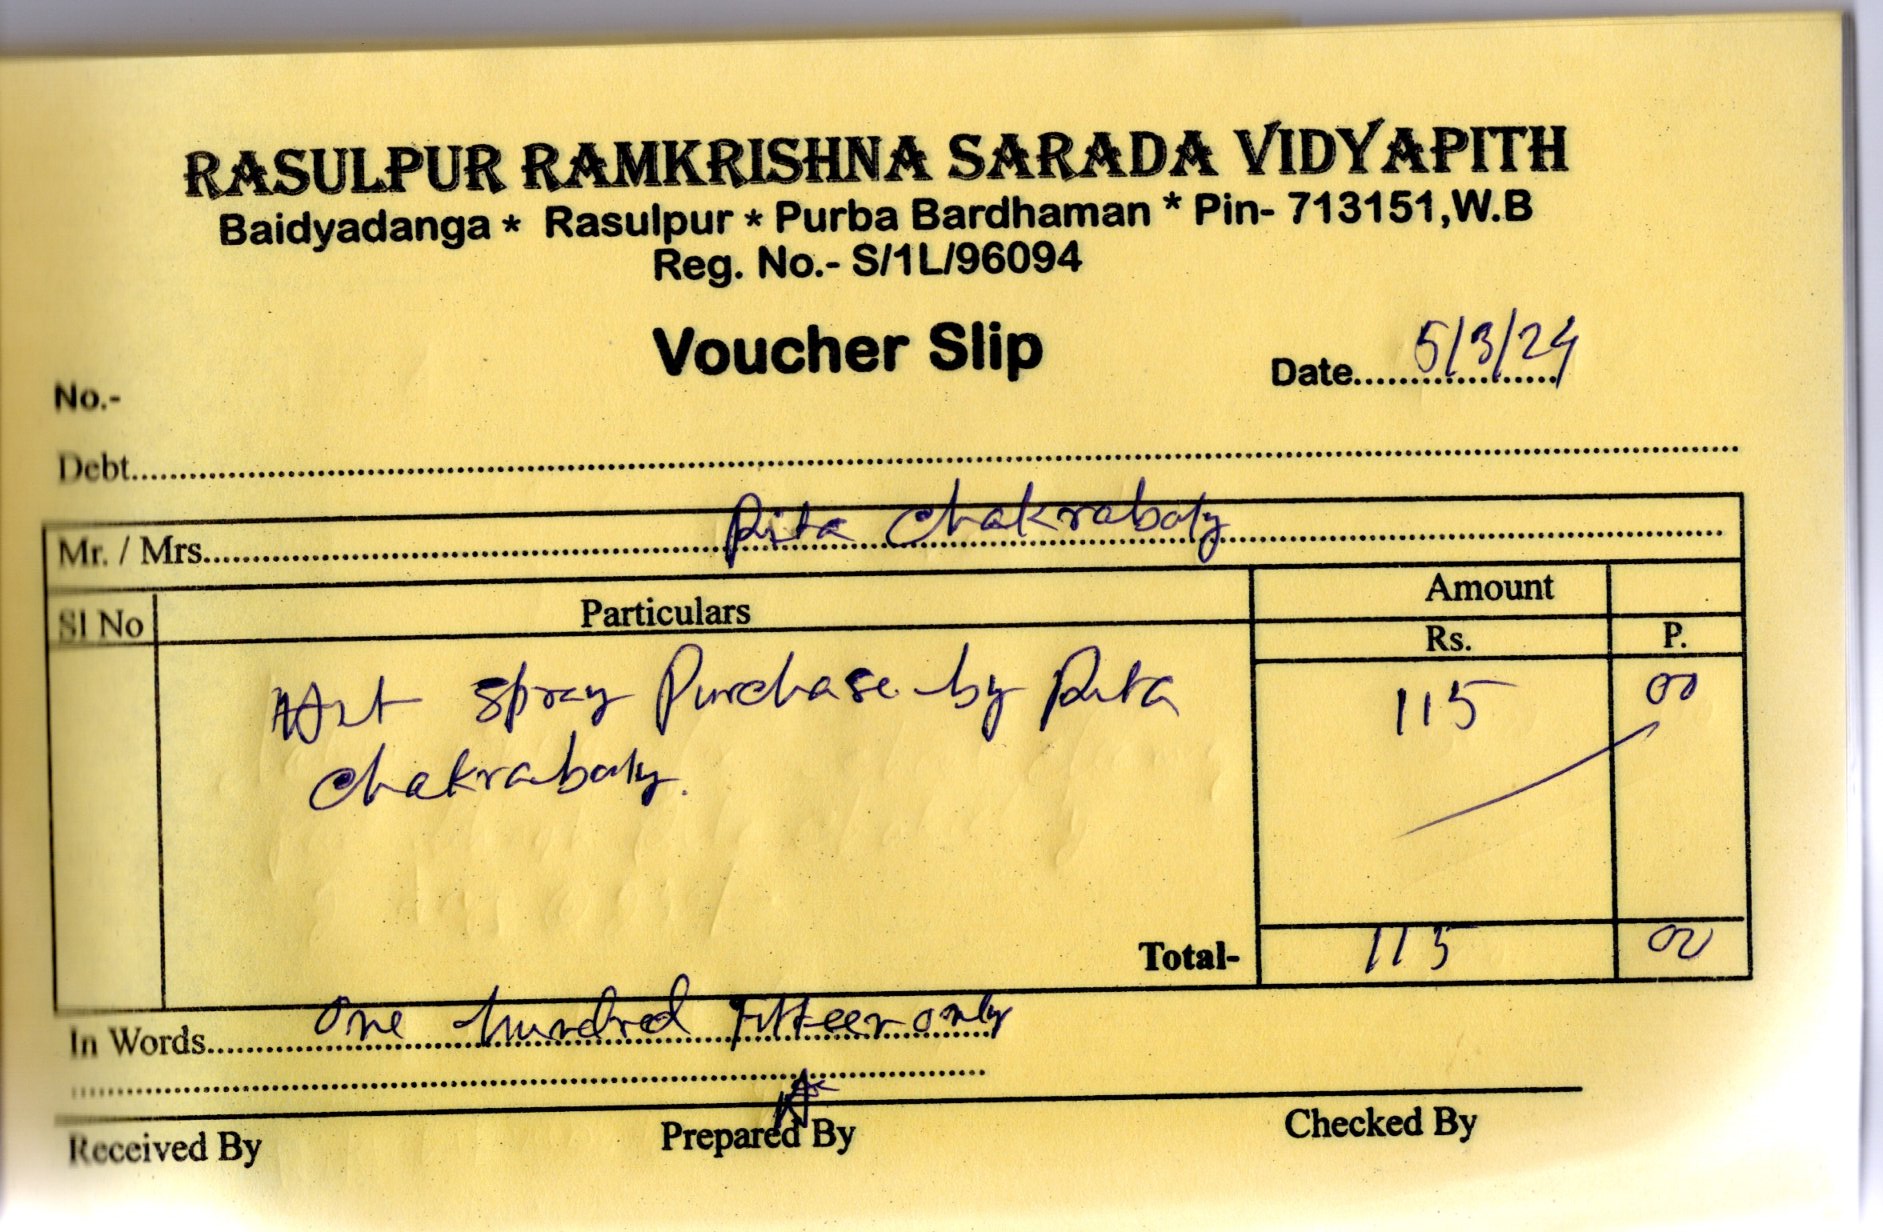 RASULPUR RAMKRISHNA SARADA VIDYAPITH
Baidyadanga * Rasulpur * Purba Bardhaman * Pin- 713151,W.B
Reg. No.- S/1L/96094
Voucher Slip
No.-
Date 5/3/24
Debt
Mr. / Mrs. Rita Chakrabaty
Sl No Particulars Amount
Rs. P.
spray Purchase by Rita 115 00
Chakrabaty.
Total- 115 00
In Words One hundred Fifteen only
Received By Prepared By Checked By